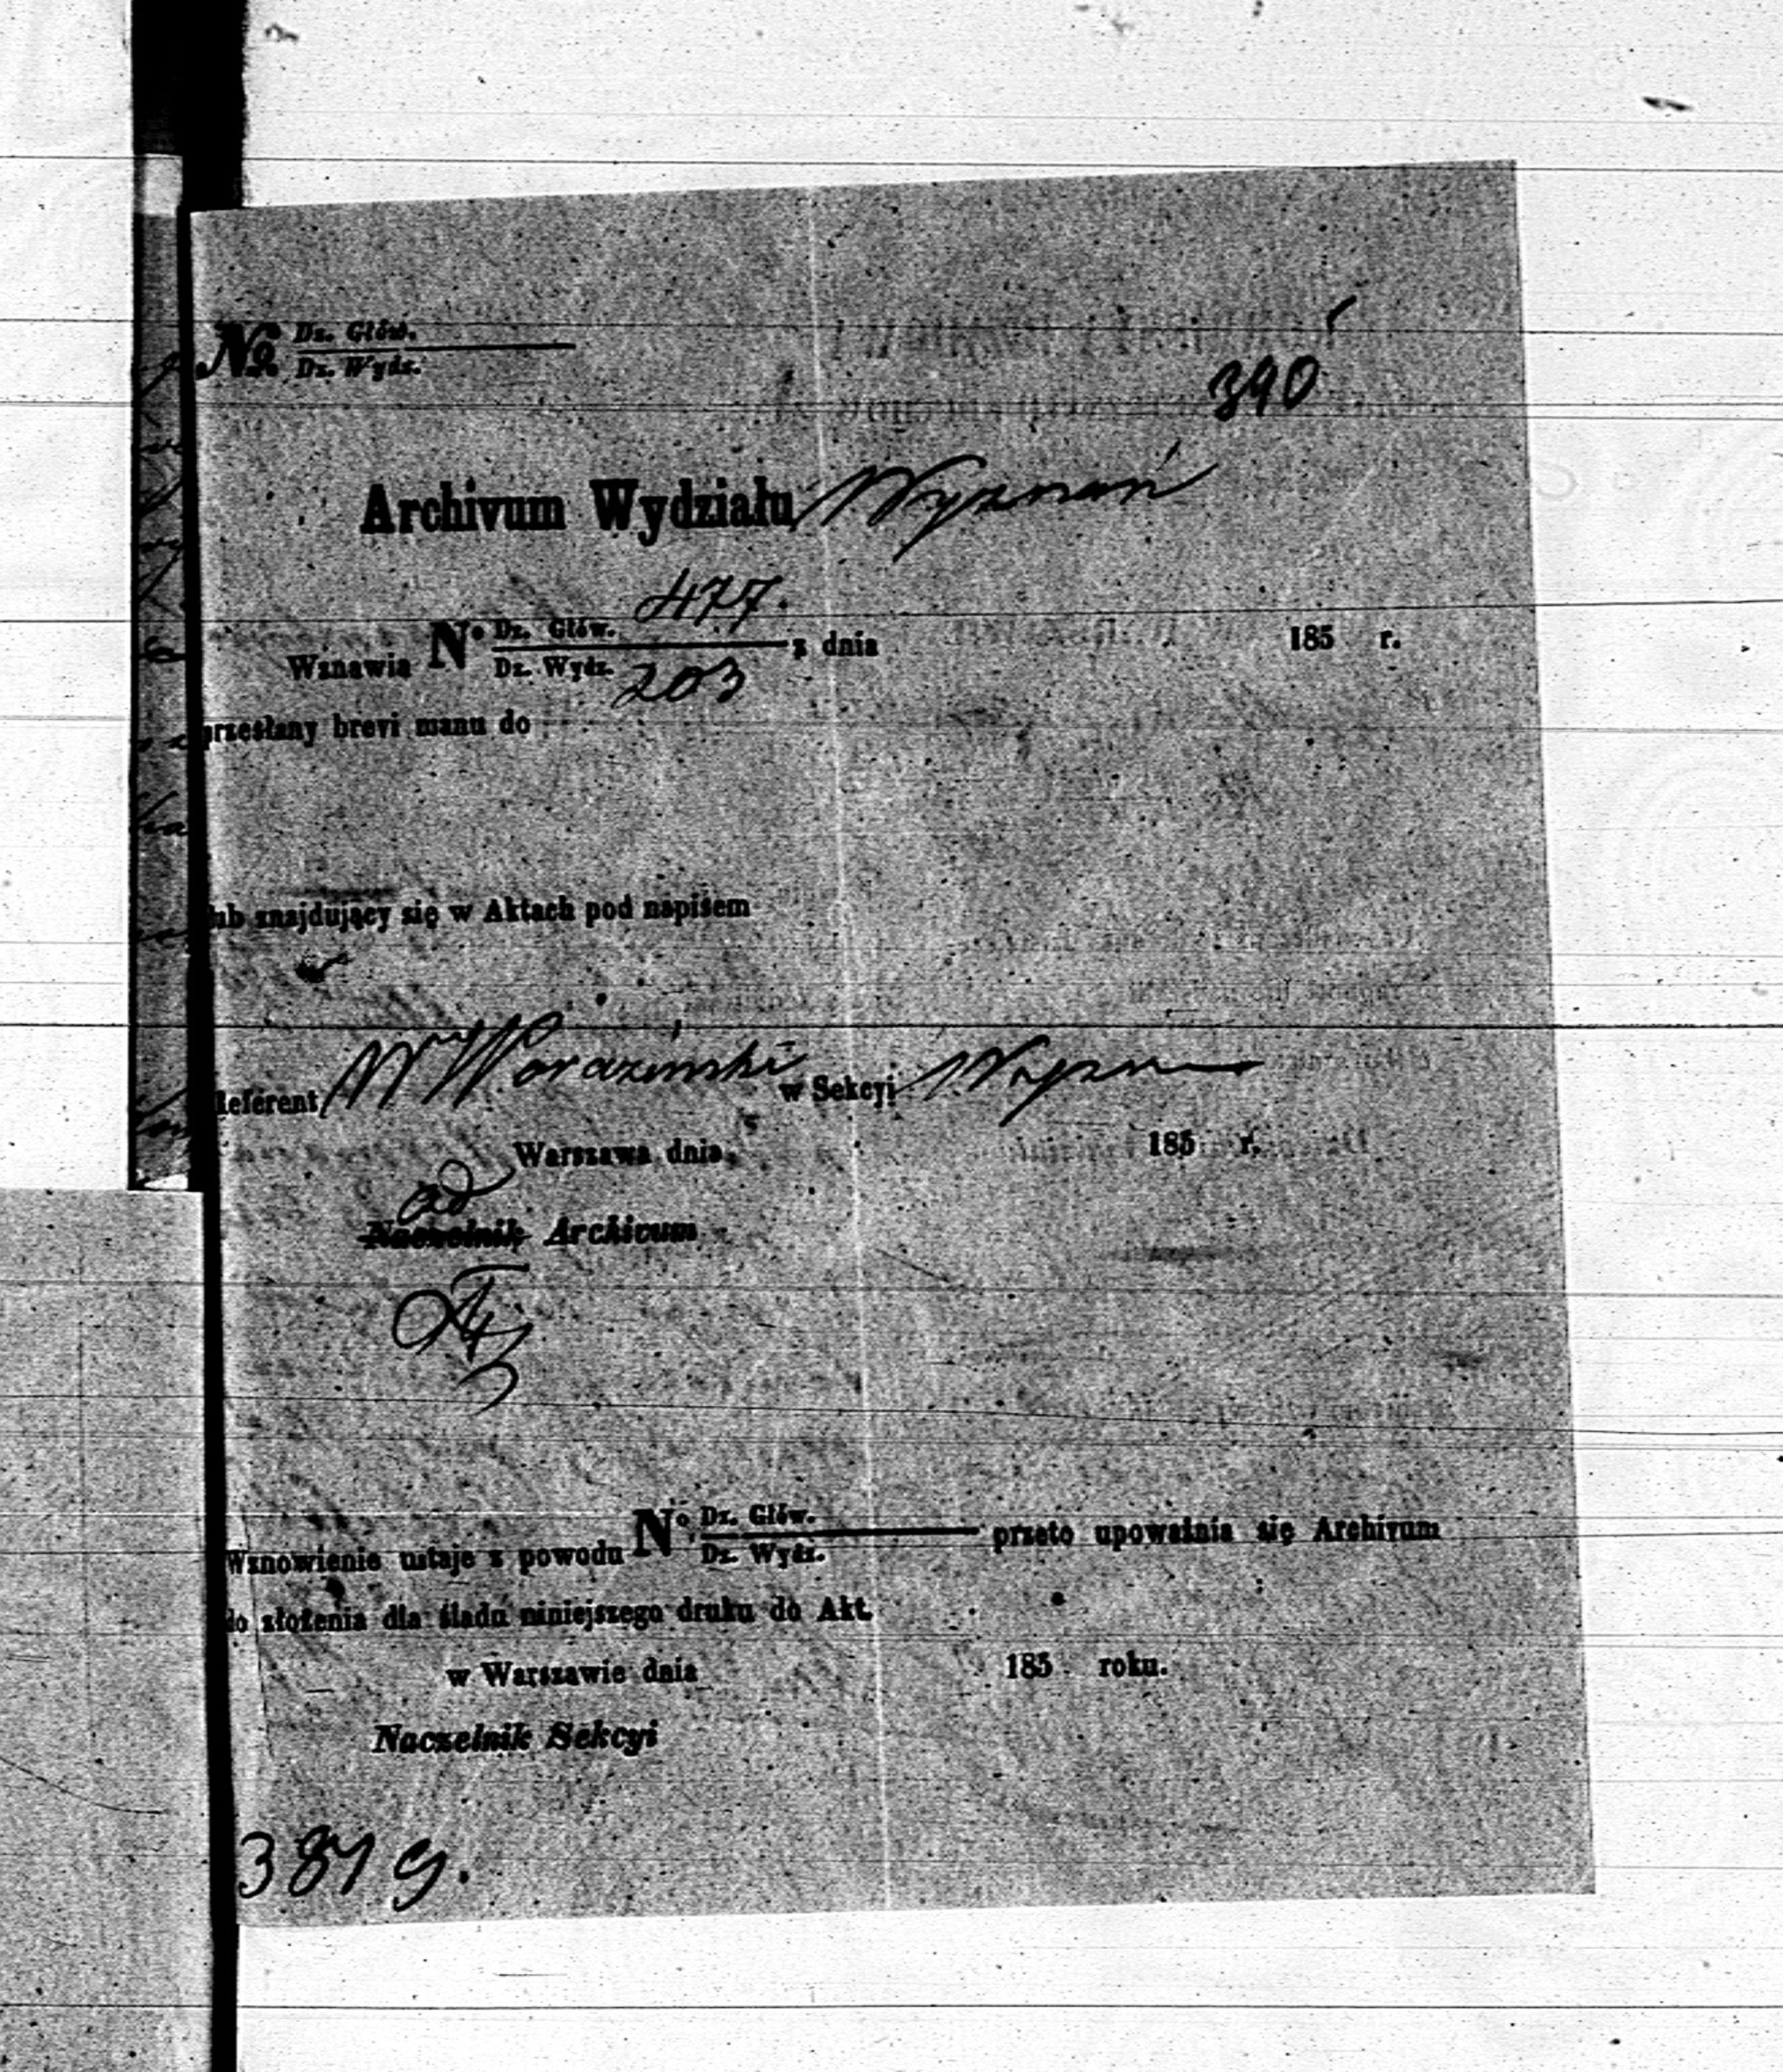 № Dz. Głów.
Dz. Wydz.
390
Archivum Wydziału Wyznań
477
Wznawia N° Dz. Głów. z dnia 185 r.
Dz. Wydz. 203
przesłany brevi manu do
lub znajdujący się w Aktach pod napisem
Referent W Worazinski w Sekcyi Wyzn
Warszawa dnia 185 r.
ad
Naczelnik Archivum
Wznowienie ustaje z powodu N° Dz. Głów. przeto upoważnia się Archivum
Dz. Wydz.
do złożenia dla śladu niniejszego druku do Akt.
w Warszawie dnia 185 roku.
Naczelnik Sekcyi
387 g.